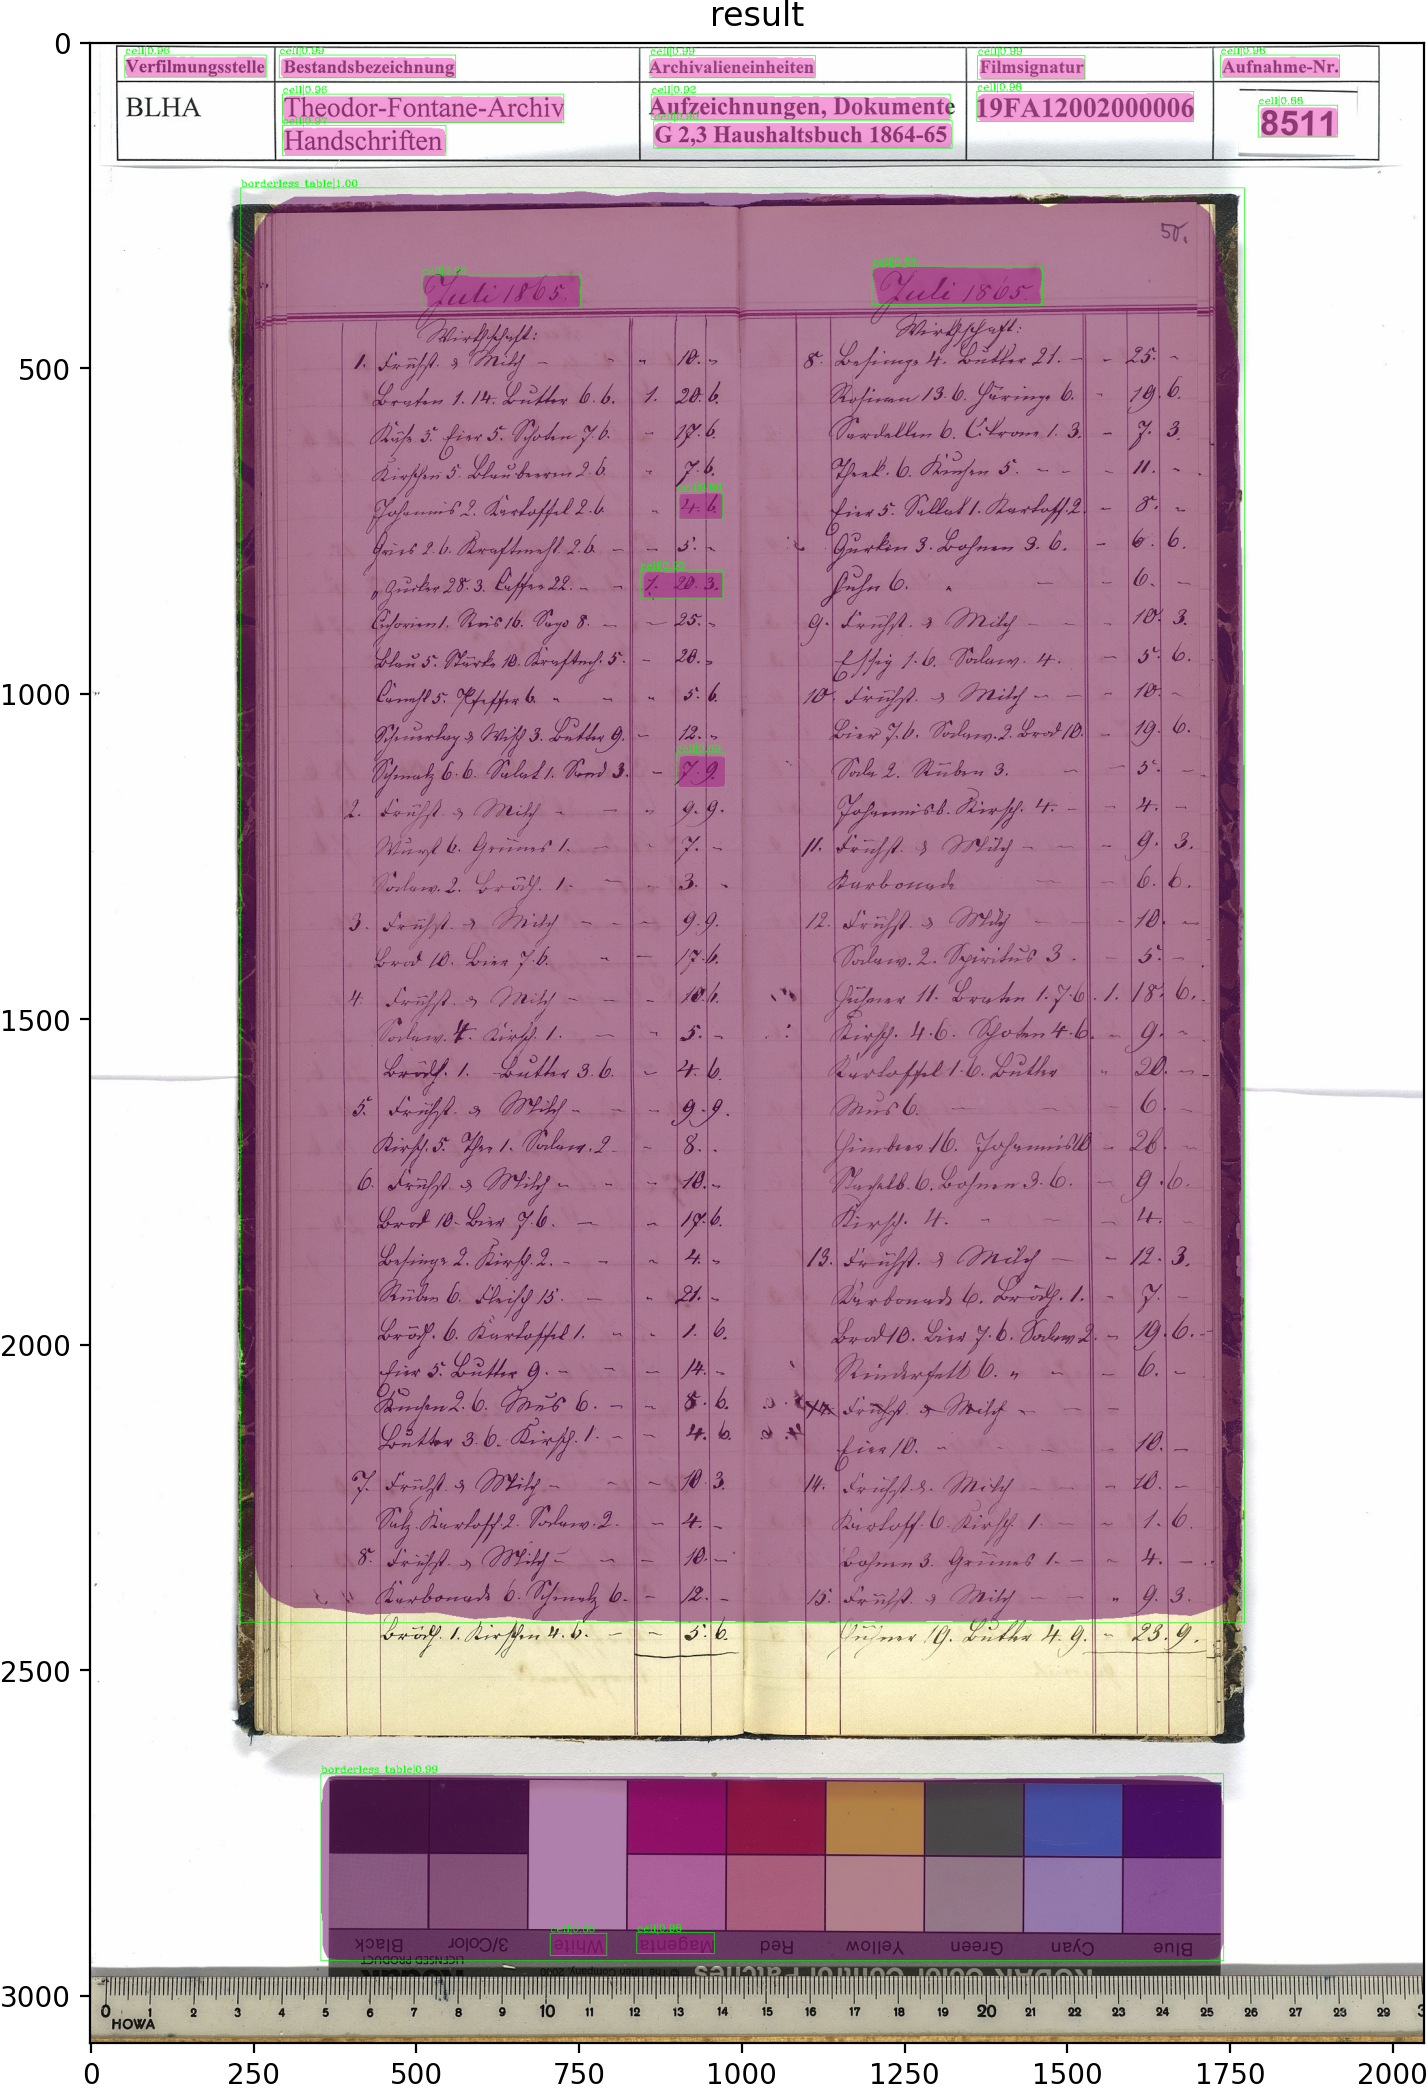 result
Verfilmungsstelle Bestandsbezeichnung Archivalieneinheiten Filmsignatur Aufnahme-Nr.
BLHA Theodor-Fontane-Archiv Aufzeichnungen, Dokumente 19FA12002000006 8511
Handschriften G 2,3 Haushaltsbuch 1864-65
borderless_table|1.00
50.
Juli 1865.
Wirthschaft:
1. Frühst. & Milch - - - 10. -
Braten 1.14. Butter 6.6. 1. 20. 6.
Käse 5. Eier 5. Schoten 7.6. - 17. 6.
Kirschen 5. Blaubeeren 2.6. - 7. 6.
Johannis 2. Kartoffel 2.6. - 4. 6.
Gries 2.6. Kraftmehl 2.6. - - 5. -
Zucker 28.3. Caffee 22. - - 1. 20. 3.
Cichorien 1. Reis 16. Sago 8. - - 25. -
Blau 5. Stärke 10. Kraftm. 5. - 20. -
5. Pfeffer 6. - - 5. 6.
3. Butter 9. - 12. -
Schmalz 6.6. Salat 1. Sand 3. - 7. 9.
2. Frühst. & Milch - - - 9. 9.
Wurst 6. Grünes 1. - - 7. -
Sodaw. 2. Brödch. 1. - - 3. -
3. Frühst. & Milch - - - 9. 9.
Brod 10. Bier 7.6. - - 17. 6.
4. Frühst. & Milch - - - 10. 6.
Sodaw. 4. Kirsch. 1. - - 5. -
Brödch. 1. Butter 3.6. - 4. 6.
5. Frühst. & Milch - - - 9. 9.
Kirsch. 5. Thee 1. Sodaw. 2. - 8. -
6. Frühst. & Milch - - - 10. -
Brod 10. Bier 7.6. - - 17. 6.
Besinge 2. Kirsch. 2. - - - 4. -
Rüben 6. Fleisch 15. - - 21. -
Brödch. 6. Kartoffel 1. - - 1. 6.
Eier 5. Butter 9. - - - 14. -
Kuchen 2.6. Mus 6. - - 8. 6.
Butter 3.6. Kirsch. 1. - - 4. 6.
7. Frühst. & Milch - - - 10. 3.
Salz. Kartoff. 2. Sodaw. 2. - 4. -
8. Frühst. & Milch - - - 10. -
Karbonade 6. Schmalz 6. - 12. -
Brödch. 1. Kirschen 4.6. - - 5. 6.
Juli 1865.
Wirthschaft:
8. Besinge 4. Butter 21. - - 25. -
Rosinen 13.6. Häringe 6. - 19. 6.
Sardellen 6. Citrone 1.3. - 7. 3.
6. Kuchen 5. - - - 11. -
Eier 5. Sallat 1. Kartoff. 2. - 8. -
Gurken 3. Bohnen 3.6. - 6. 6.
Huhn 6. - - 6. -
9. Frühst. & Milch - - - 10. 3.
Essig 1.6. Sodaw. 4. - 5. 6.
10. Frühst. & Milch - - - 10. -
Bier 7.6. Sodaw. 2. Brod 10. - 19. 6.
Soda 2. Rüben 3. - - 5. -
Johannisb. Kirsch. 4. - - 4. -
11. Frühst. & Milch - - - 9. 3.
Karbonade - - 6. 6.
12. Frühst. & Milch - - - 10. -
Sodaw. 2. Spiritus 3. - 5. -
Hühner 11. Braten 1.7.6. 1. 18. 6.
Kirsch. 4.6. Schoten 4.6. - 9. -
Kartoffel 1.6. Butter - 20. -
Mus 6. - - - 6. -
Himbeer 16. Johannis 10 - 26. -
Stachelb. 6. Bohnen 3.6. - 9. 6.
Kirsch. 4. - - - 4. -
13. Frühst. & Milch - - 12. 3.
Karbonade 6. Brödch. 1. - 7. -
Brod 10. Bier 7.6. Sodaw 2. - 19. 6.
Rinderfett 6. - - - 6. -
14. Frühst. & Milch - - -
Eier 10. - - - 10. -
14. Frühst. & Milch - - - 10. -
Kartoff. 6. Kirsch. 1. - - 1. 6.
Bohnen 3. Grünes 1. - - 4. -
15. Frühst. & Milch - - - 9. 3.
Hühner 19. Butter 4.9. - 23. 9.
borderless_table|0.99
Black 3/Color White Magenta Red Yellow Green Cyan Blue
LICENSED PRODUCT © The Tiffen Company, 2000 KODAK Color Control Patches
0 1 2 3 4 5 6 7 8 9 10 11 12 13 14 15 16 17 18 19 20 21 22 23 24 25 26 27 28 29
HOWA
0
500
1000
1500
2000
2500
3000
0 250 500 750 1000 1250 1500 1750 2000